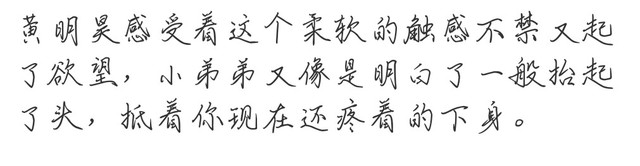 黄明昊感受着这个柔软的触感不禁又起
了欲望，小弟弟又像是明白了一般抬起
了头，抵着你现在还疼着的下身。